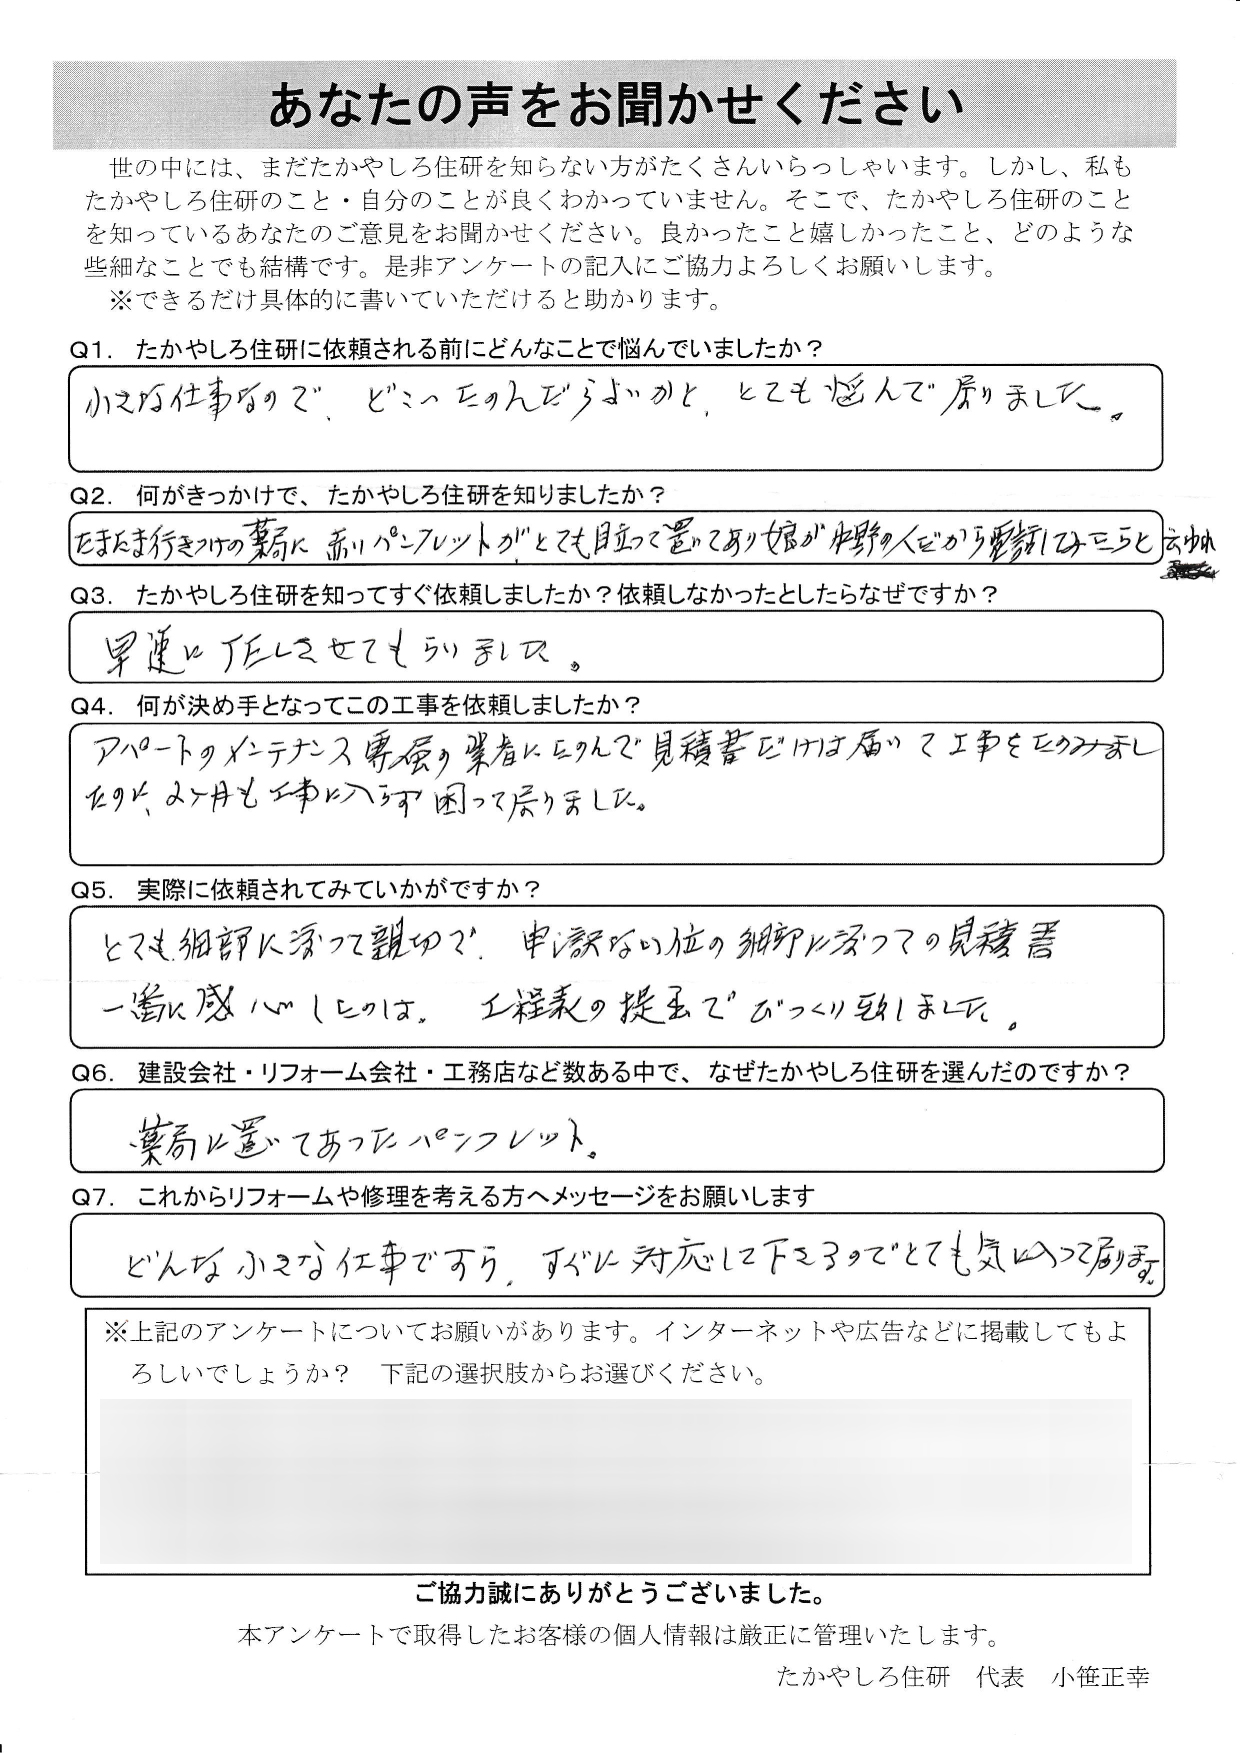 あなたの声をお聞かせください
世の中には、まだたかやしろ住研を知らない方がたくさんいらっしゃいます。しかし、私も
たかやしろ住研のこと・自分のことが良くわかっていません。そこで、たかやしろ住研のこと
を知っているあなたのご意見をお聞かせください。良かったこと嬉しかったこと、どのような
些細なことでも結構です。是非アンケートの記入にご協力よろしくお願いします。
※できるだけ具体的に書いていただけると助かります。
Q1. たかやしろ住研に依頼される前にどんなことで悩んでいましたか？
小さな仕事なので、どこへたのんだらよいかと、とても悩んで居りました。
Q2. 何がきっかけで、たかやしろ住研を知りましたか？
たまたま行きつけの薬局に赤いパンフレットが、とても目立って置いてあり娘が中野の人だから電話してみたらと云ゆれ
Q3. たかやしろ住研を知ってすぐ依頼しましたか？依頼しなかったとしたらなぜですか？
早速にTELさせてもらいました。
Q4. 何が決め手となってこの工事を依頼しましたか？
アパートのメンテナンス専属の業者にたのんで見積書だけは届いて工事をたのみまし
たのに、2ヶ月も工事に入らず困って居りました。
Q5. 実際に依頼されてみていかがですか？
とても細部に渉って親切で、申し訳ない位の細部に渉っての見積書
一番に感心したのは、工程表の提示でびっくり致しました。
Q6. 建設会社・リフォーム会社・工務店など数ある中で、なぜたかやしろ住研を選んだのですか？
薬局に置いてあったパンフレット。
Q7. これからリフォームや修理を考える方へメッセージをお願いします
どんな小さな仕事ですら、すぐに対応して下さるのでとても気に入って居ります。
※上記のアンケートについてお願いがあります。インターネットや広告などに掲載してもよ
ろしいでしょうか？ 下記の選択肢からお選びください。
ご協力誠にありがとうございました。
本アンケートで取得したお客様の個人情報は厳正に管理いたします。
たかやしろ住研 代表 小笹正幸